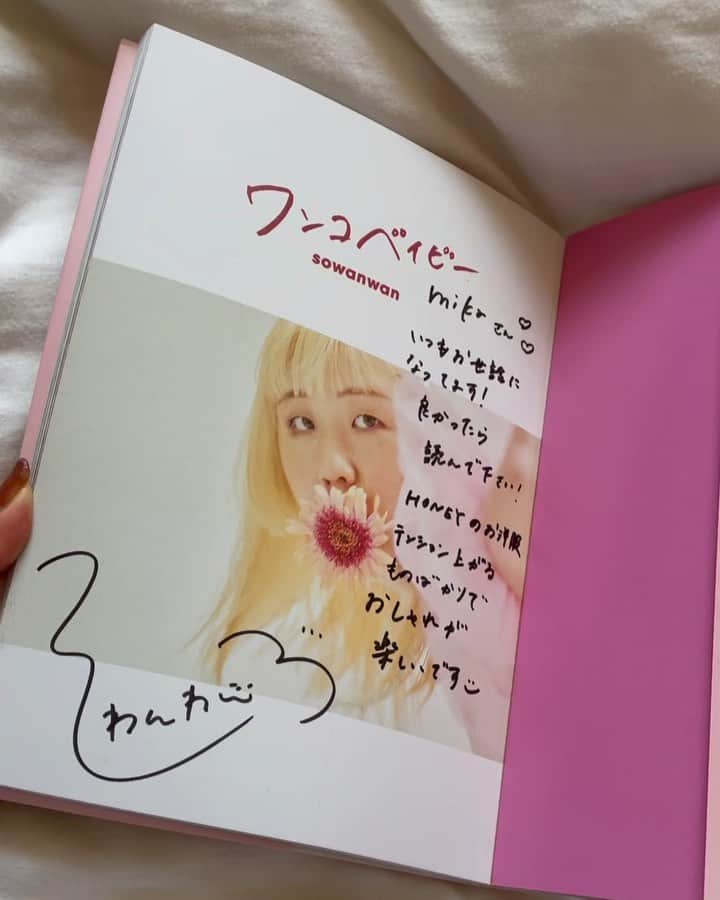 ワンコベイビー
sowanwan
mikaさん♡♡
いつもお世話に
なってます!
良かったら
読んで下さい!
HONEYのお洋服
テンション上がる
ものばかりで
おしゃれが
楽しいです
わんわ